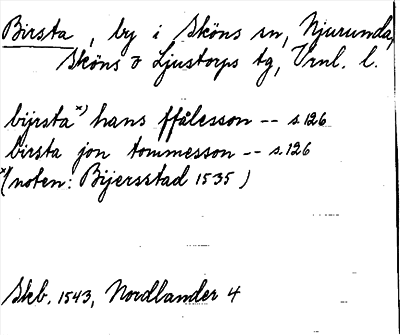 Birsta, by i Sköns sn, Njurunda,
Sköns o Ljustorps tg, Vrnl. l.
bijrsta x) hans ffålesson -- s.126
birsta jon tommesson -- s.126
x) (noten: Bijersstad 1535)
Skb. 1543, Nordlander 4